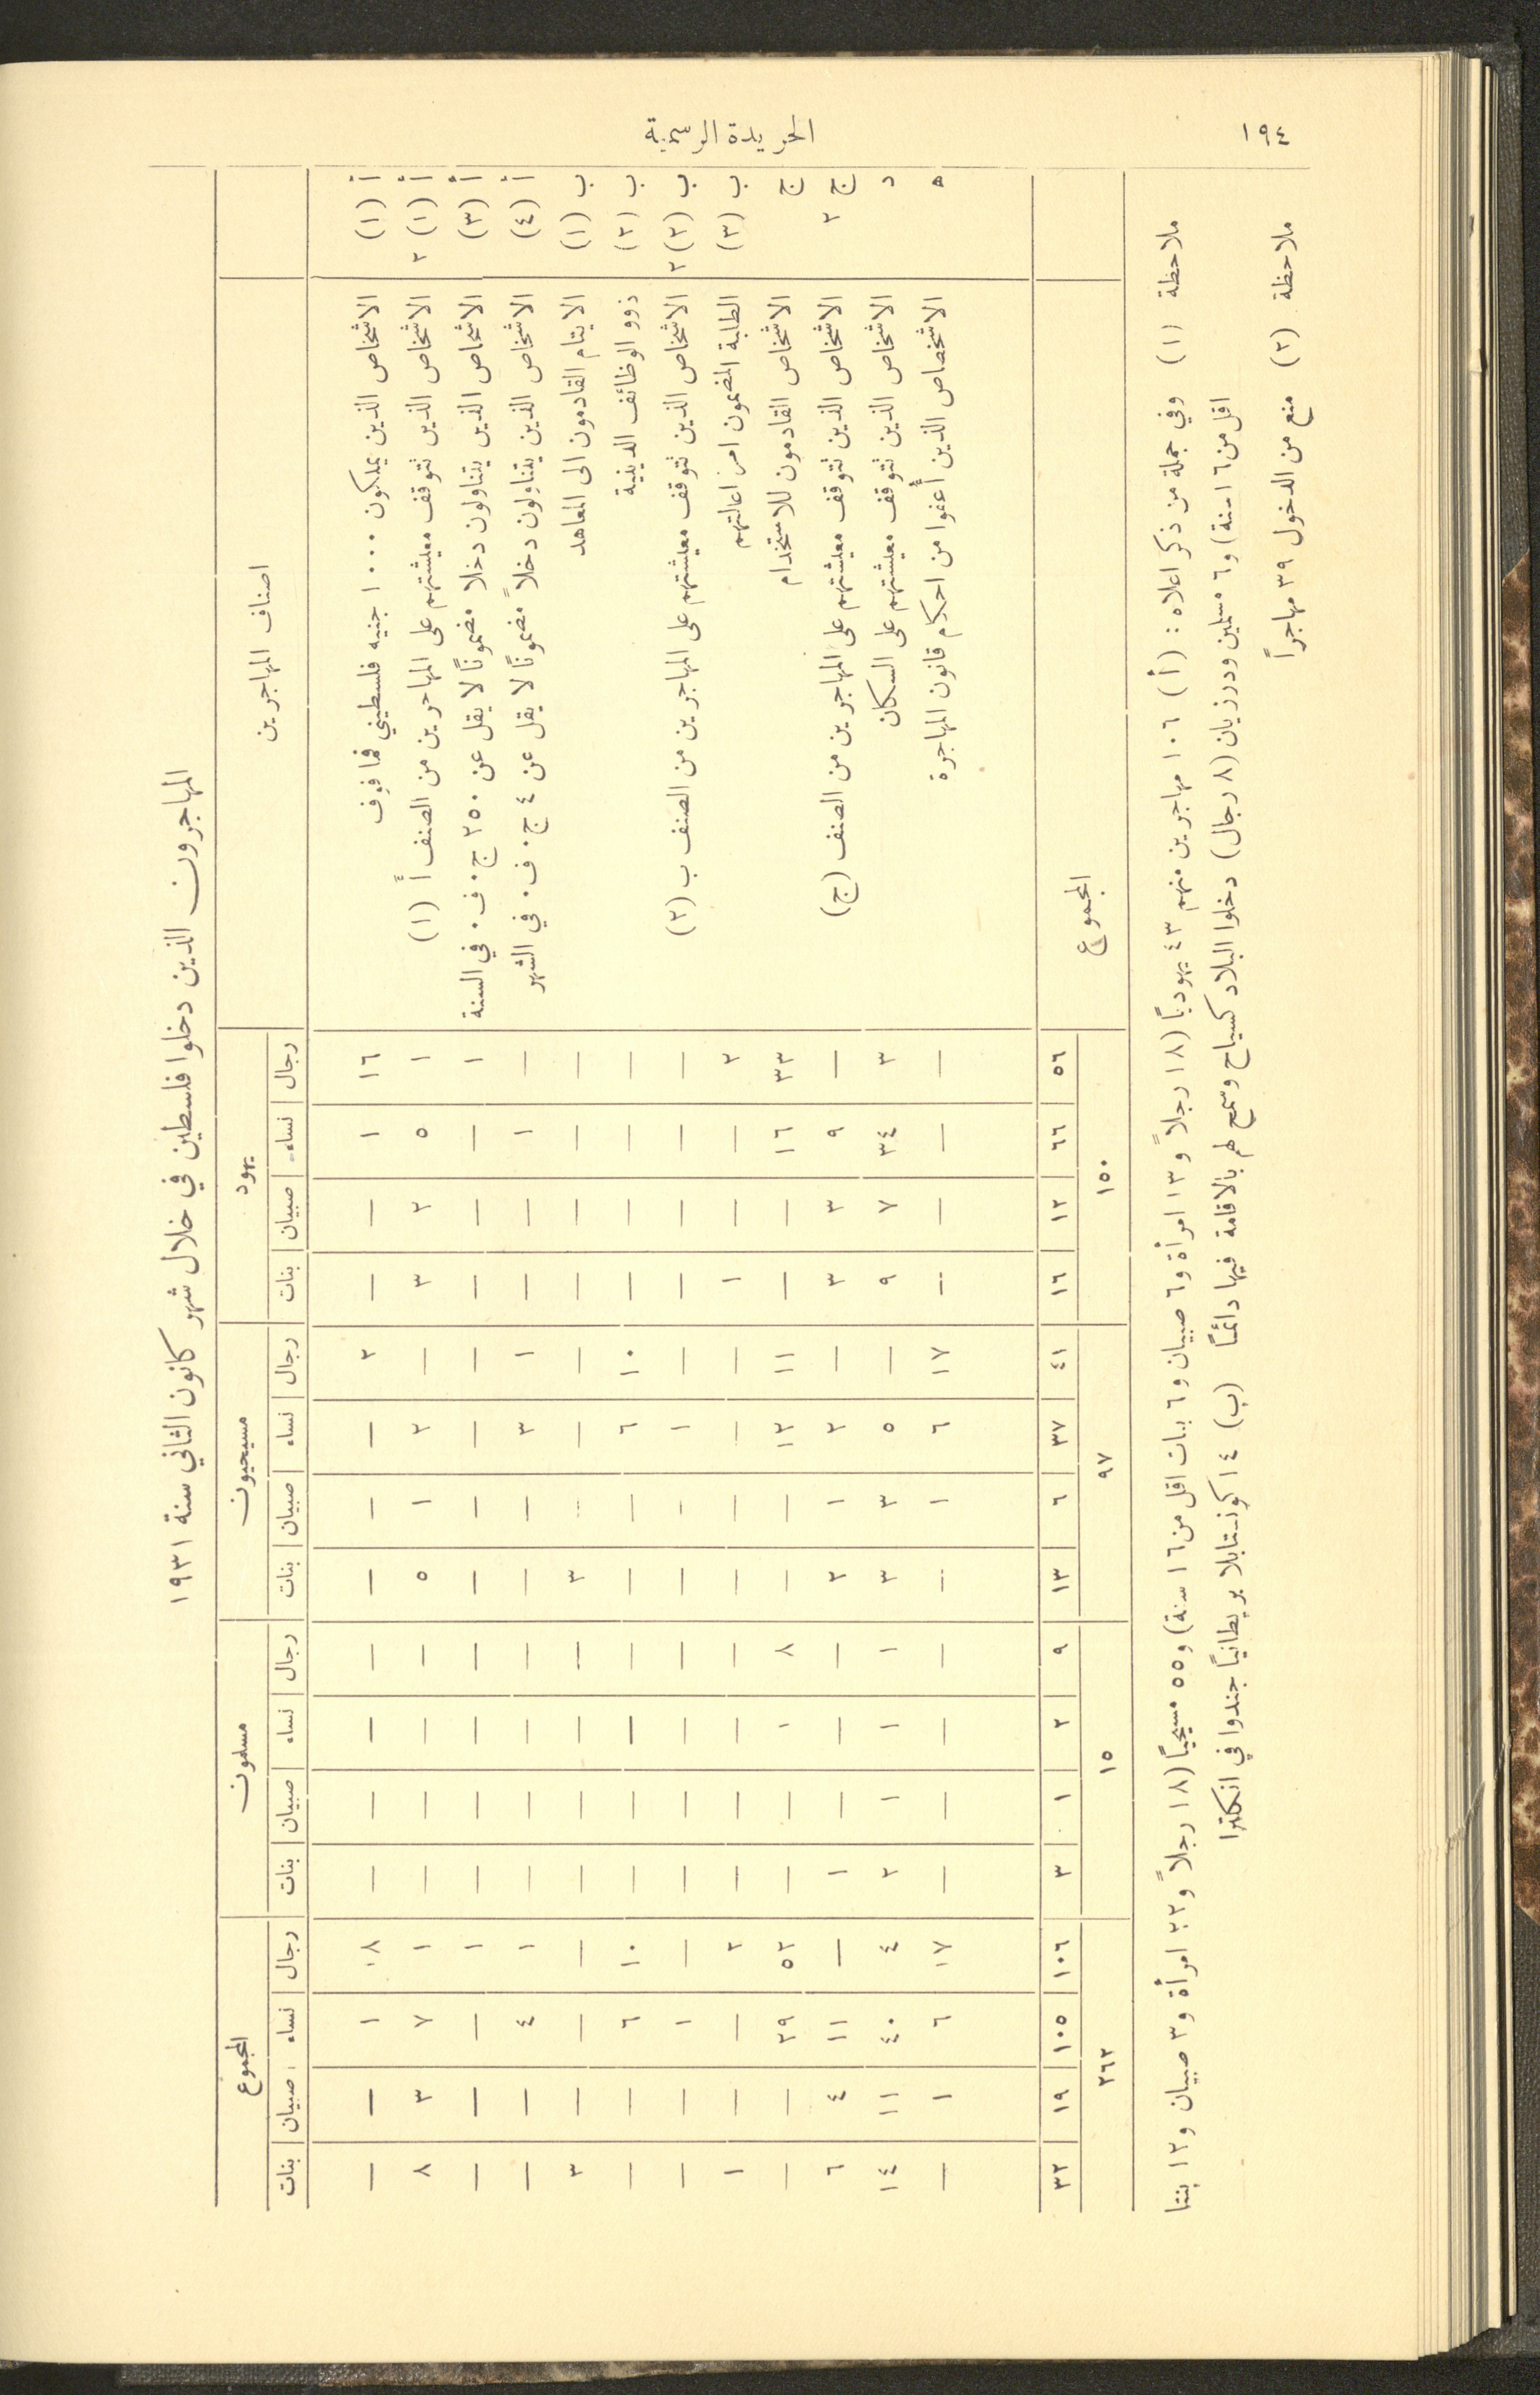 ١٩٤
الجريدة الرسمية
المهاجرون الذين دخلوا فلسطين في خلال شهر كانون الثاني سنة ١٩٣١
اصناف المهاجرين | يهود | مسيحيون | مسلمون | المجموع
رجال | نساء | صبيان | بنات | رجال | نساء | صبيان | بنات | رجال | نساء | صبيان | بنات | رجال | نساء | صبيان | بنات
أ (١) الاشخاص الذين يملكون ١٠٠٠ جنيه فلسطيني فما فوق | ١٦ | ١ | — | — | ٢ | — | — | — | — | — | — | — | ١٨ | ١ | — | —
أ (١) ٢ الاشخاص الذين تتوقف معيشتهم على المهاجرين من الصنف أ (١) | ١ | ٥ | ٢ | ٣ | — | ٢ | ١ | ٥ | — | — | — | — | ١ | ٧ | ٣ | ٨
أ (٣) الاشخاص الذين يتناولون دخلا مضمونًا لا يقل عن ٢٥٠ ج. ف. في السنة | ١ | — | — | — | — | — | — | — | — | — | — | — | ١ | — | — | —
أ (٤) الاشخاص الذين يتناولون دخلاً مضمونًا لا يقل عن ٤ ج. ف. في الشهر | — | ١ | — | — | ١ | ٣ | — | — | — | — | — | — | ١ | ٤ | — | —
ب (١) الايتام القادمون الى المعاهد | — | — | — | — | — | — | — | ٣ | — | — | — | — | — | — | — | ٣
ب (٢) ذوو الوظائف الدينية | — | — | — | — | ١٠ | ٦ | — | — | — | — | — | — | ١٠ | ٦ | — | —
ب (٢) ٢ الاشخاص الذين تتوقف معيشتهم على المهاجرين من الصنف ب (٢) | — | — | — | — | — | ١ | — | — | — | — | — | — | — | ١ | — | —
ب (٣) الطلبة المضمون امر اعالتهم | ٢ | — | — | ١ | — | — | — | — | — | — | — | — | ٢ | — | — | ١
ج الاشخاص القادمون للاستخدام | ٣٣ | ١٦ | — | — | ١١ | ١٢ | — | — | ٨ | ١ | — | — | ٥٢ | ٢٩ | — | —
ج ٢ الاشخاص الذين تتوقف معيشتهم على المهاجرين من الصنف (ج) | — | ٩ | ٣ | ٣ | — | ٢ | ١ | ٢ | — | — | — | ١ | — | ١١ | ٤ | ٦
د الاشخاص الذين تتوقف معيشتهم على السكان | ٣ | ٣٤ | ٧ | ٩ | — | ٥ | ٣ | ٣ | ١ | ١ | ١ | ٢ | ٤ | ٤٠ | ١١ | ١٤
ه الاشخصاص الذين أعفوا من احكام قانون المهاجرة | — | — | — | — | ١٧ | ٦ | ١ | — | — | — | — | — | ١٧ | ٦ | ١ | —
المجموع | ٥٦ | ٦٦ | ١٢ | ١٦ | ٤١ | ٣٧ | ٦ | ١٣ | ٩ | ٢ | ١ | ٣ | ١٠٦ | ١٠٥ | ١٩ | ٣٢
١٥٠ | ٩٧ | ١٥ | ٢٦٢
ملاحظة (١) وفي جملة من ذكر اعلاه : (أ) ١٠٦ مهاجرين منهم ٤٣ يهوديًا (١٨ رجلاً و١٣ امرأة و٦ صبيان و٦ بنات اقل من ١٦ سنة) و٥٥ مسيحيًا (١٨ رجلاً و٢٢ امرأة و٣ صبيان و١٢ بنتا
اقل من ١٦ سنة) و٦ مسلمين ودرزيان (٨ رجال) دخلوا البلاد كسياح وسمح لهم بالاقامة فيها دائمًا (ب) ١٤ كونستابلا بريطانيًا جندوا في انكلترا
ملاحظة (٢) منع من الدخول ٣٩ مهاجراً